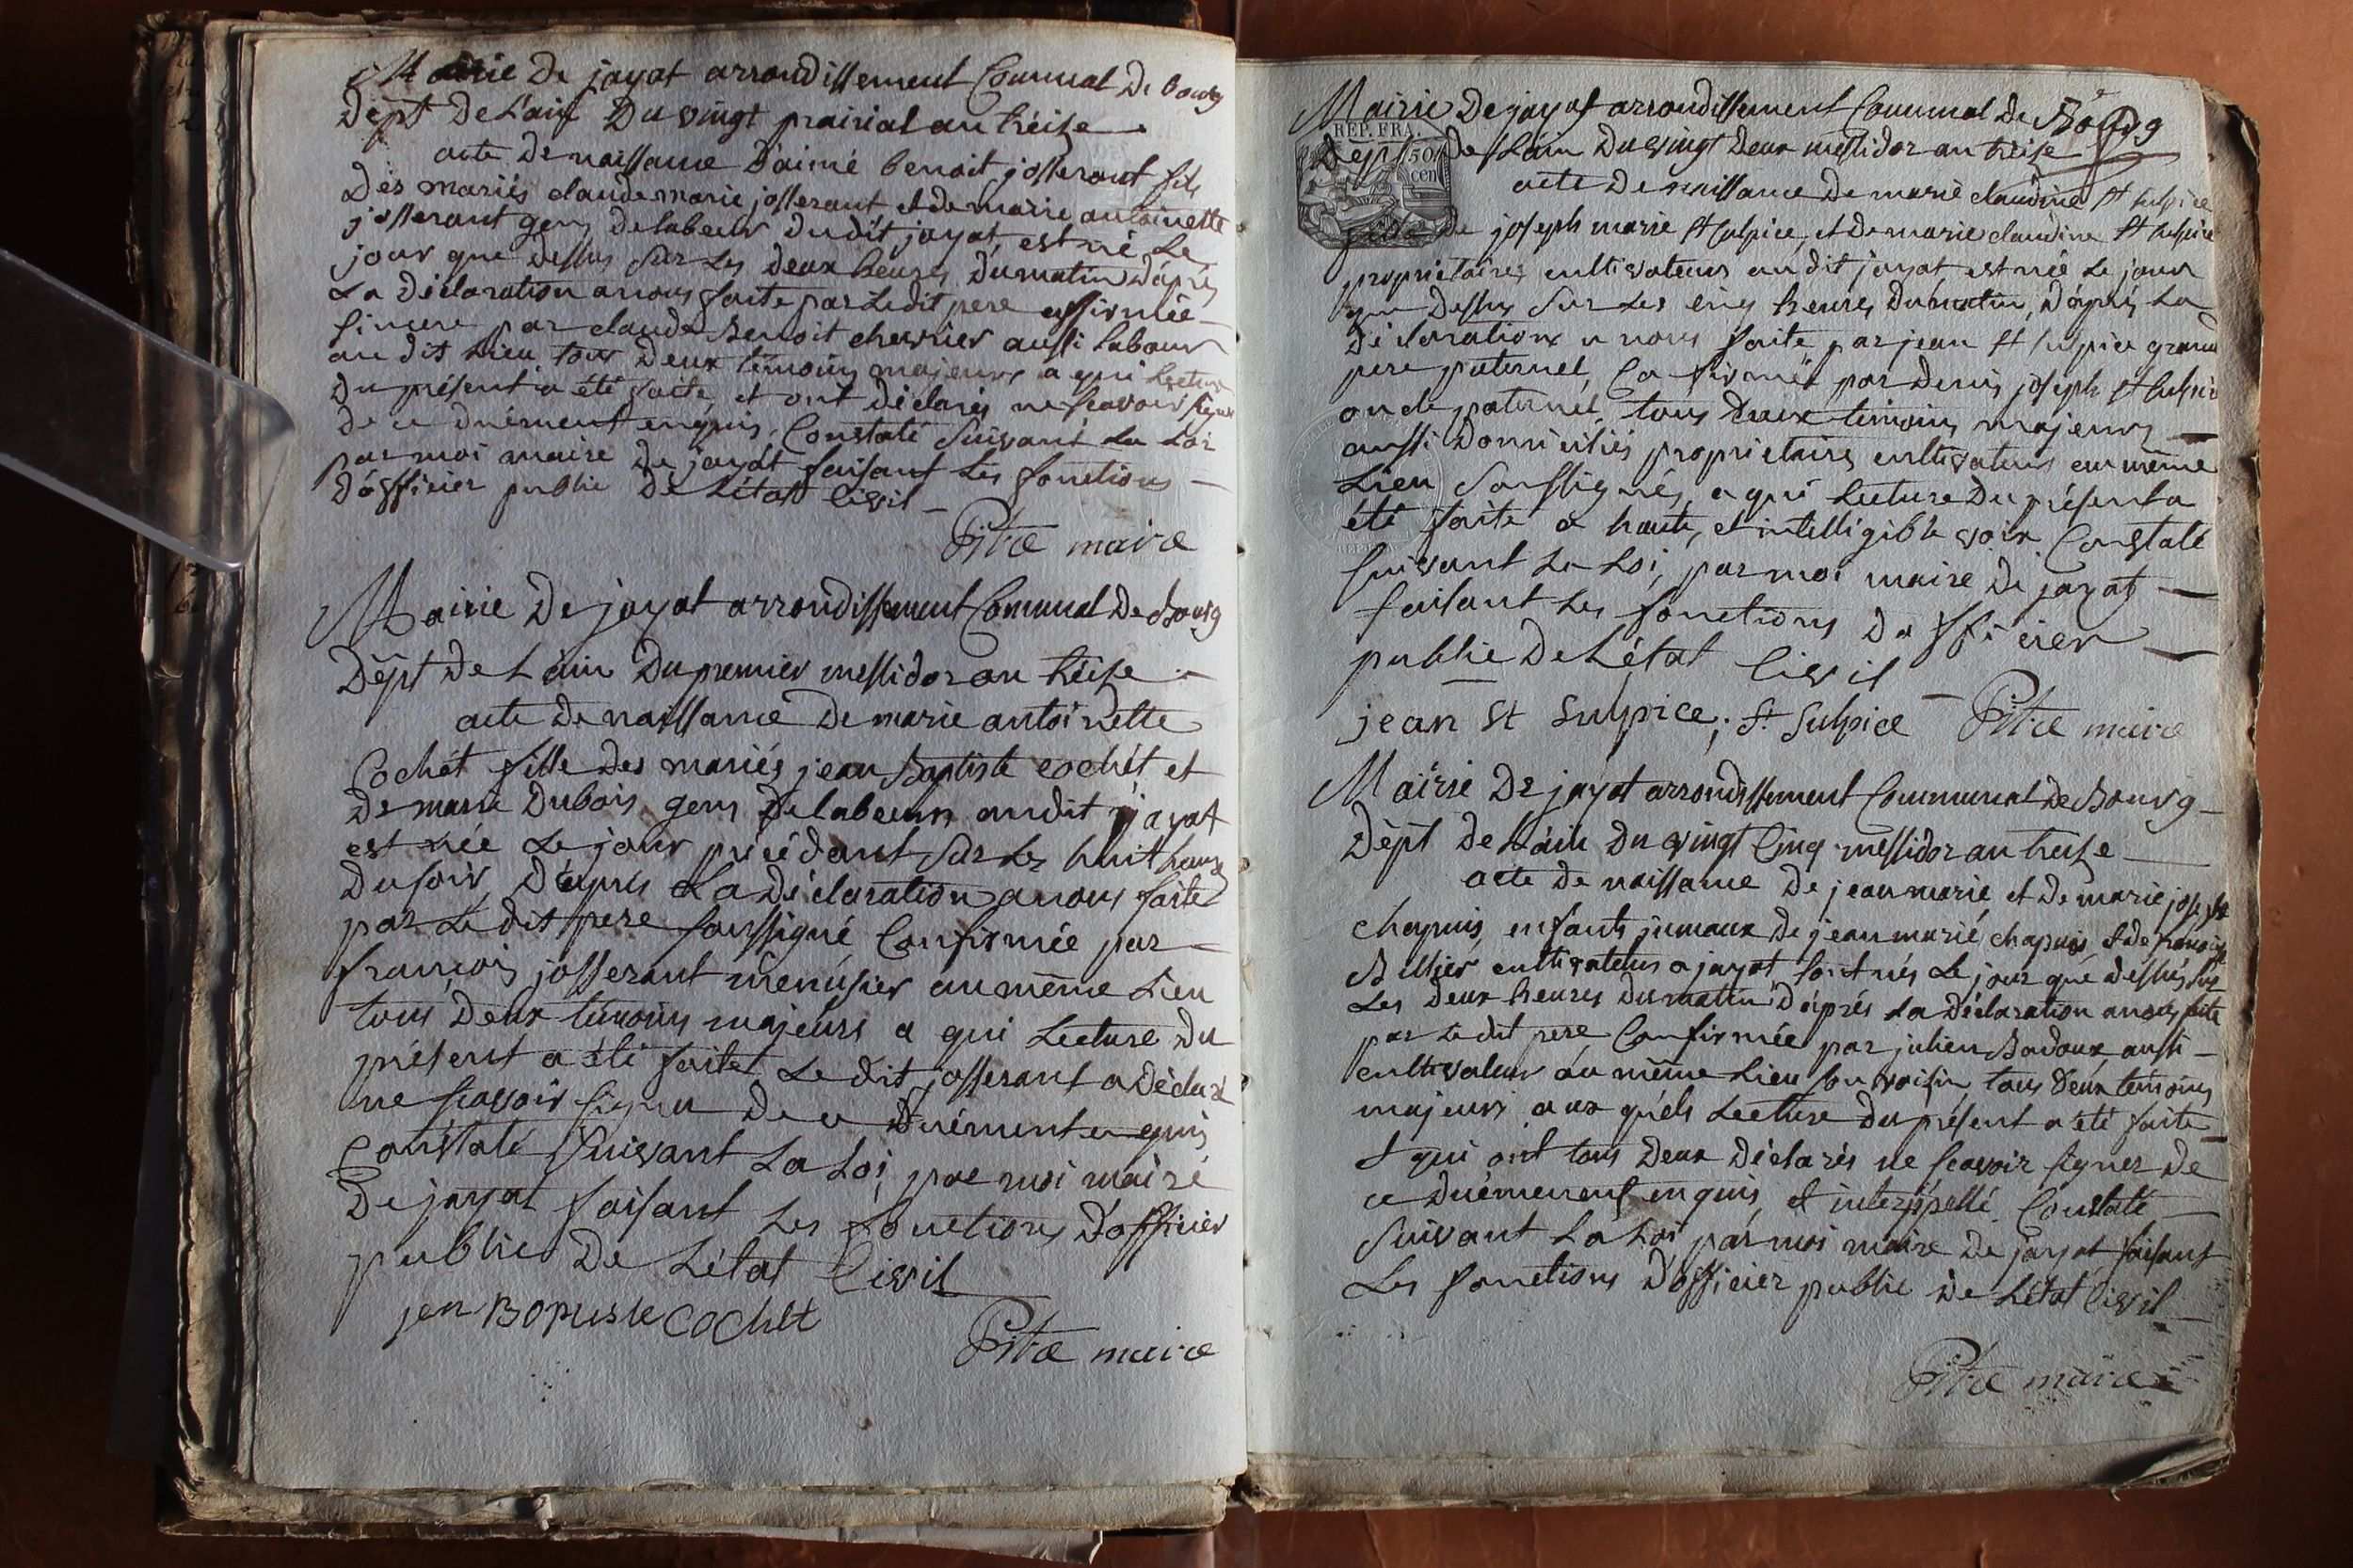 Mairie De jayat arrondissement Communal De bourg
Dept De L'ain Du vingt prairial an treize
acte de naissance d'aimé benoit josserant fils
Des mariés claude marie josserant et de marie antoinette
josserant gens de labeur dudit jayat, est né le
jour que dessus sur les deux heures du matin d'après
La déclaration a nous faite par ledit pere affirmée
sincere par claude Benoit chevrier aussi labour
au dit Lieu tous Deux témoins majeurs a qui Lecture
Du présent a été faite, et ont Déclarés ne scavoir signer
De ce duement enquis, Constaté Suivant La Loi
par moi maire De jayat faisant Les fonctions
D'officier public De L'état Civil
Pite maire
Mairie De jayat arrondissement Comunal De Bourg
Dept De L'ain Du premier messidor an treize
acte De naissance De marie antoinette
Cochet fille Des mariés jean Baptiste cochét et
De marie Dubois gens De labeur audit jayat
est née Le jour précédant sur Les huit heures
Du soir, D'après La Déclaration a nous faite
par Le dit pere soussigné Confirmée par
françois josserant menusier au même Lieu
tous Deux témoins majeurs a qui Lecture Du
présent a été faite Le dit josserant a Déclaré
ne scavoir signer De ce Duement enquis
Constaté Suivant La Loi par moi maire
De jayat faisant Les fonctions D'officier
public De L'état Civil
jen Boptiste Cochet
Pite maire
Mairie De jayat arrondissement Communal De Bourg
REP. FRA.
50
cen
Dept De L'ain Du vingt Deux messidor an treize
acte De naissance De marie claudine St sulpice
fille De joseph marie St sulpice, et De marie claudine St sulpice
propriétaires cultivateurs au dit jayat est née Le jour
que Dessus Sur Les cinq heures Du matin, D'après La
Déclaration a nous faite par jean St sulpice grand
pere paternel, Confirmée par Denis joseph St sulpice
oncle paternel, tous Deux témoins majeurs
aussi Domiciliés propriétaires cultivateurs au même
Lieu Soussignés, a qui Lecture Du présent a
été faite a haute, et intelligible voix Constaté
Suivant La Loi, par moi maire De jayat
faisant Les fonctions D'officier
public De L'état Civil
jean St Sulpice; St Sulpice Pite maire
Mairie De jayat arrondissement Communal De Bourg
Dept De L'ain Du vingt Cinq messidor an treize
acte De naissance De jean marie et De marie josephte
chapuis, enfants jumaux De jean marie chapuis et de françoise
cultivateurs a jayat sont nés Le jour que dessus sur
Les Deux heures Du matin D'après La Déclaration a nous faite
par Le dit pere Confirmée par julien Badoux aussi
cultivateur au même Lieu son voisin tous Deux témoins
majeurs aux quels Lecture Du présent a été faite
et qui ont tous Deux Déclarés ne scavoir signer De
ce Duëment enquis, et interppellé. Constaté
Suivant La Loi par moi maire De jayat faisant
Les fonctions D'officier public De L'état Civil
Pite maire